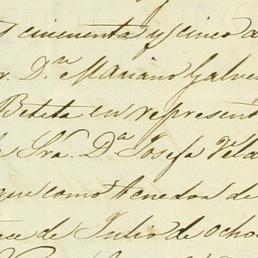 cincuenta y cinco a
r. D.ⁿ Mariano Galve
Beteta en represent
Sra. D.ª Josefa Vela
que como tenedora de
ce de Julio de ocho